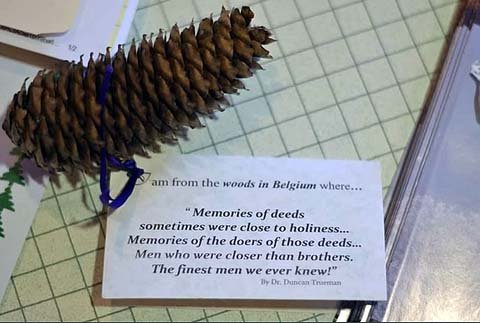 1/2
am from the woods in Belgium where...
“ Memories of deeds
sometimes were close to holiness...
Memories of the doers of those deeds...
Men who were closer than brothers.
The finest men we ever knew!”
By Dr. Duncan Trueman